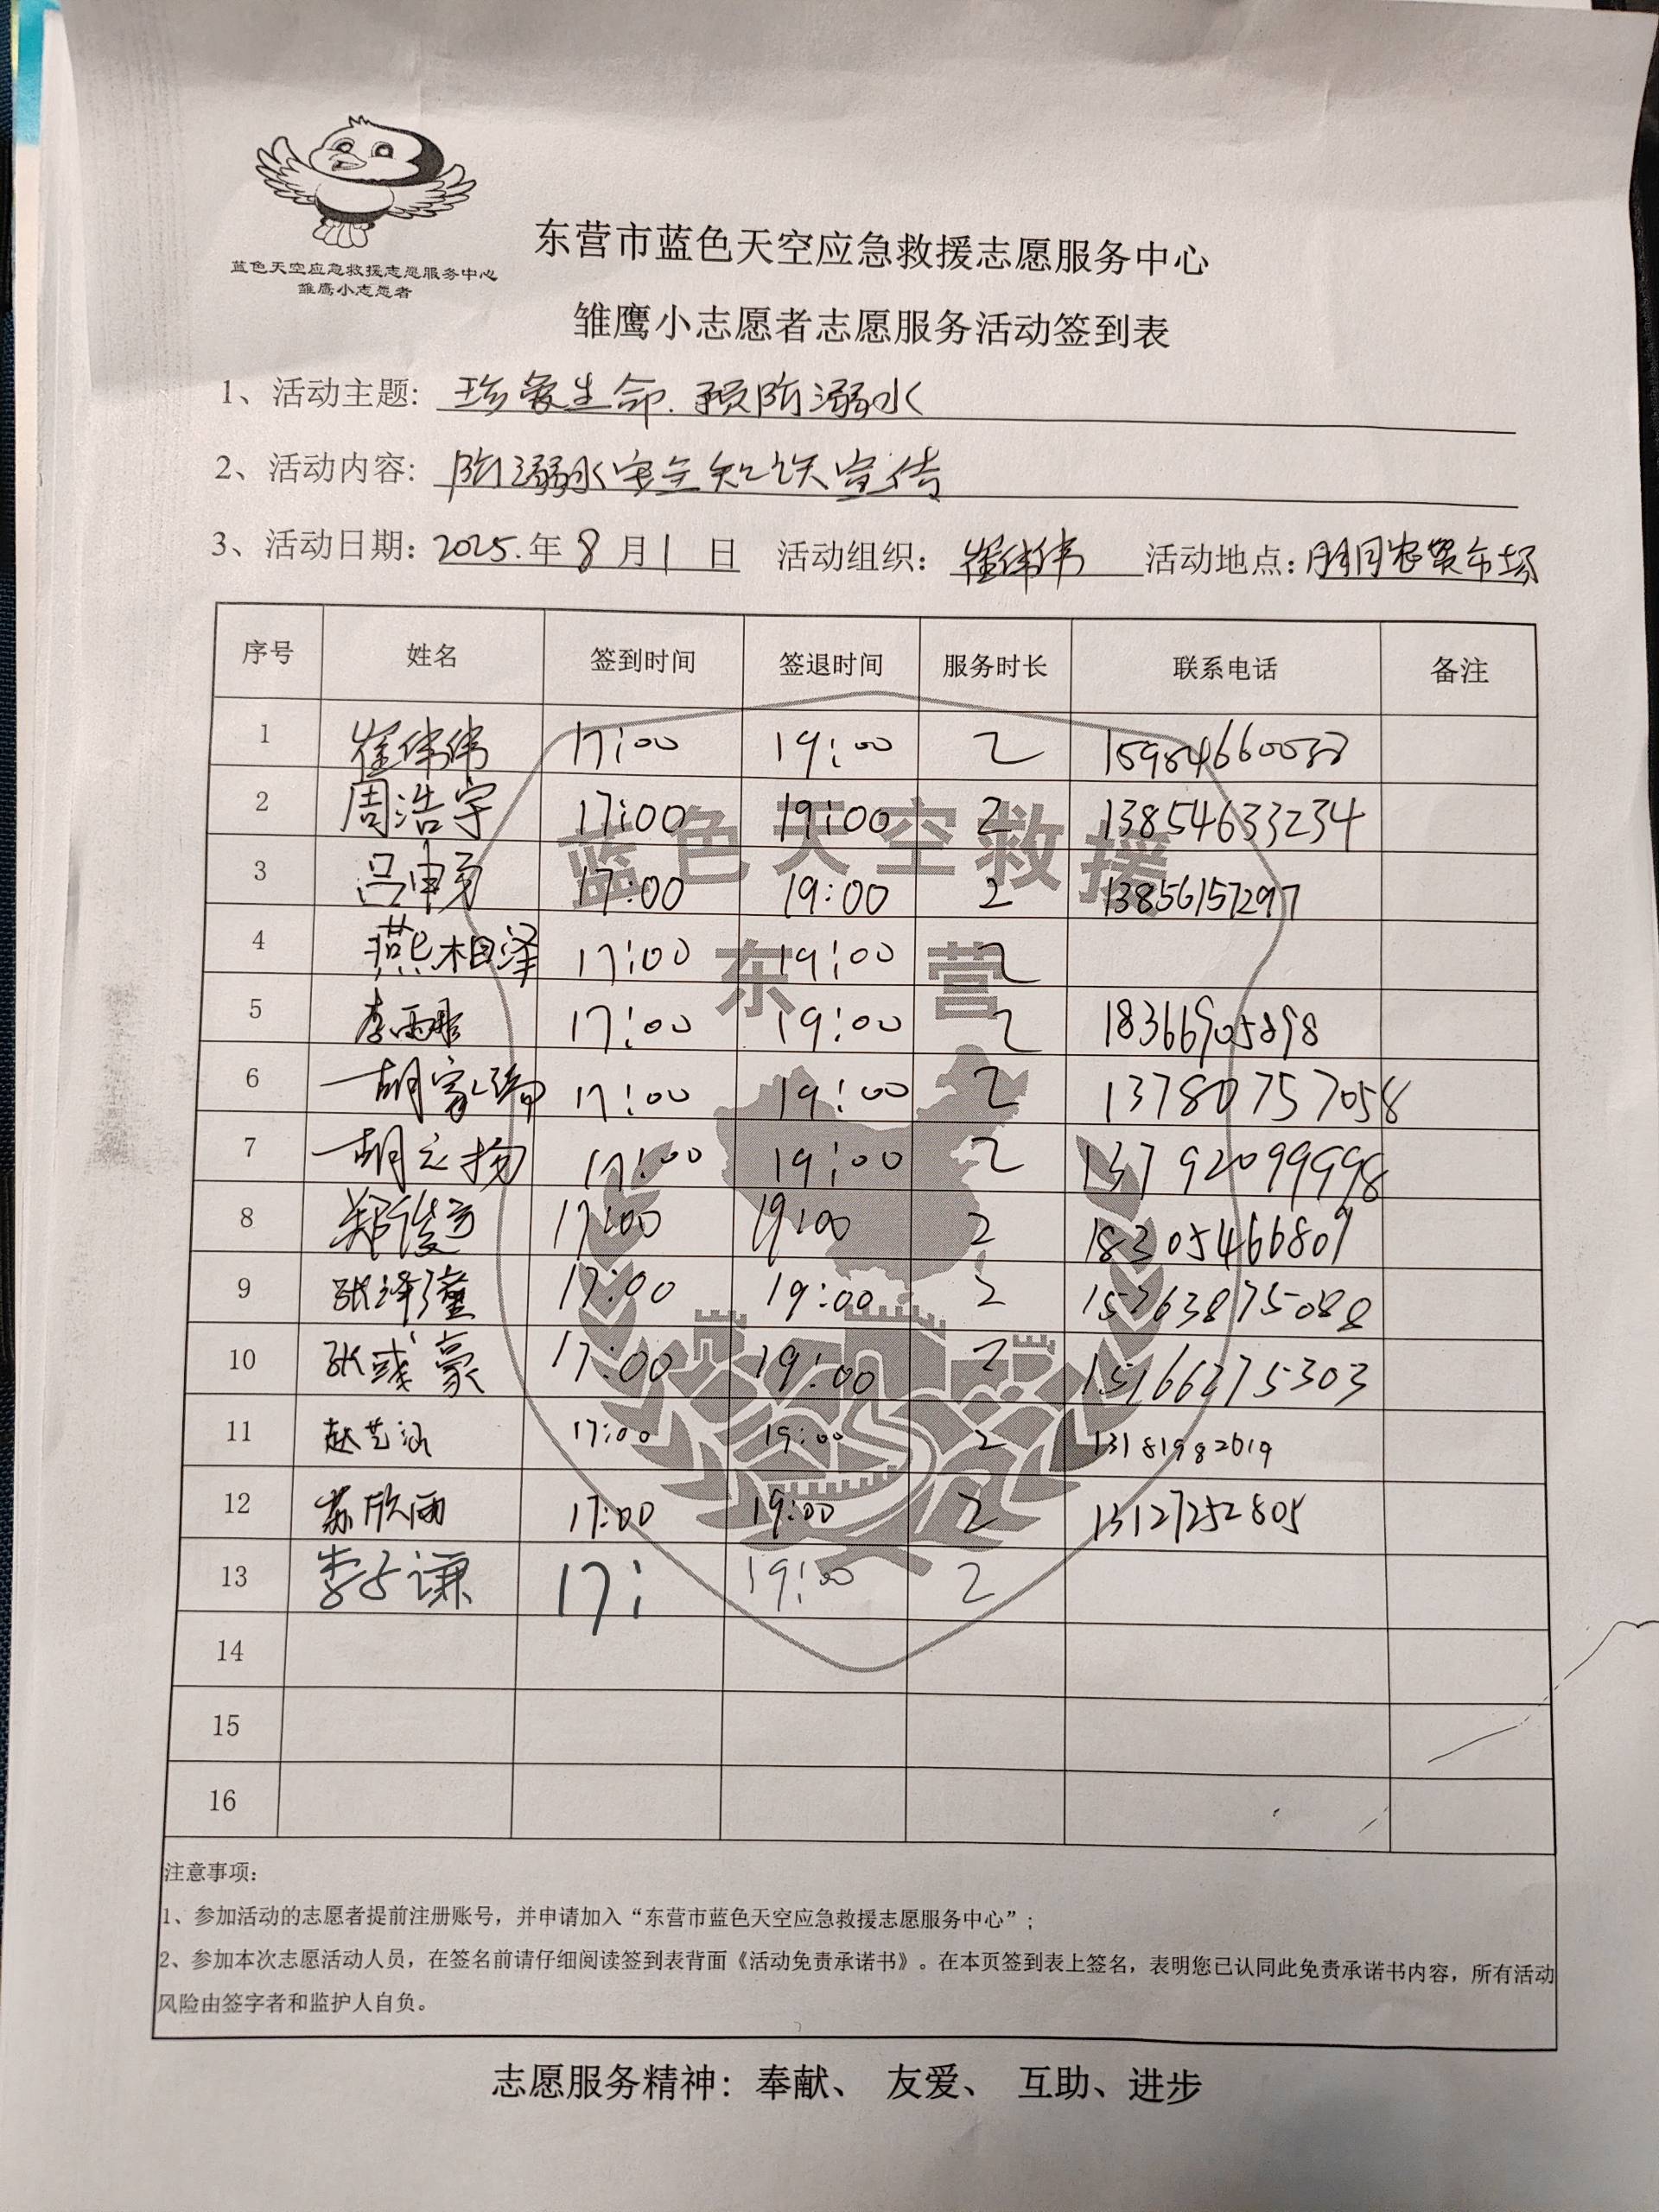 蓝色天空应急救援志愿服务中心
雏鹰小志愿者
东营市蓝色天空应急救援志愿服务中心
雏鹰小志愿者志愿服务活动签到表
1、活动主题: 珍爱生命.预防溺水
2、活动内容: 防溺水安全知识宣传
3、活动日期: 2025.年8月1日 活动组织: 崔伟伟 活动地点: 农贸市场
序号 姓名 签到时间 签退时间 服务时长 联系电话 备注
1 崔伟伟 17:00 19:00 2
2 周浩宇 17:00 19:00 2 13854633234
3 17:00 19:00 2 13856157297
4 燕相泽 17:00 19:00 2
5 李雨彤 17:00 19:00 2 18366905898
6 胡家瑞 17:00 19:00 2 13780757058
7 胡之扬 17:00 19:00 2 13792099998
8 17:00 19:00 2 18305466809
9 17:00 19:00 2 15763875088
10 张彧豪 17:00 19:00 2 15166275303
11 赵艺涵 17:00 19:00 2 13181982619
12 苏欣雨 17:00 19:00 2 13127252805
13 李子谦 17: 19:00 2
14
15
16
蓝色天空救援
东营
注意事项:
1、参加活动的志愿者提前注册账号，并申请加入“东营市蓝色天空应急救援志愿服务中心”;
2、参加本次志愿活动人员，在签名前请仔细阅读签到表背面《活动免责承诺书》。在本页签到表上签名，表明您已认同此免责承诺书内容，所有活动
风险由签字者和监护人自负。
志愿服务精神: 奉献、 友爱、 互助、进步